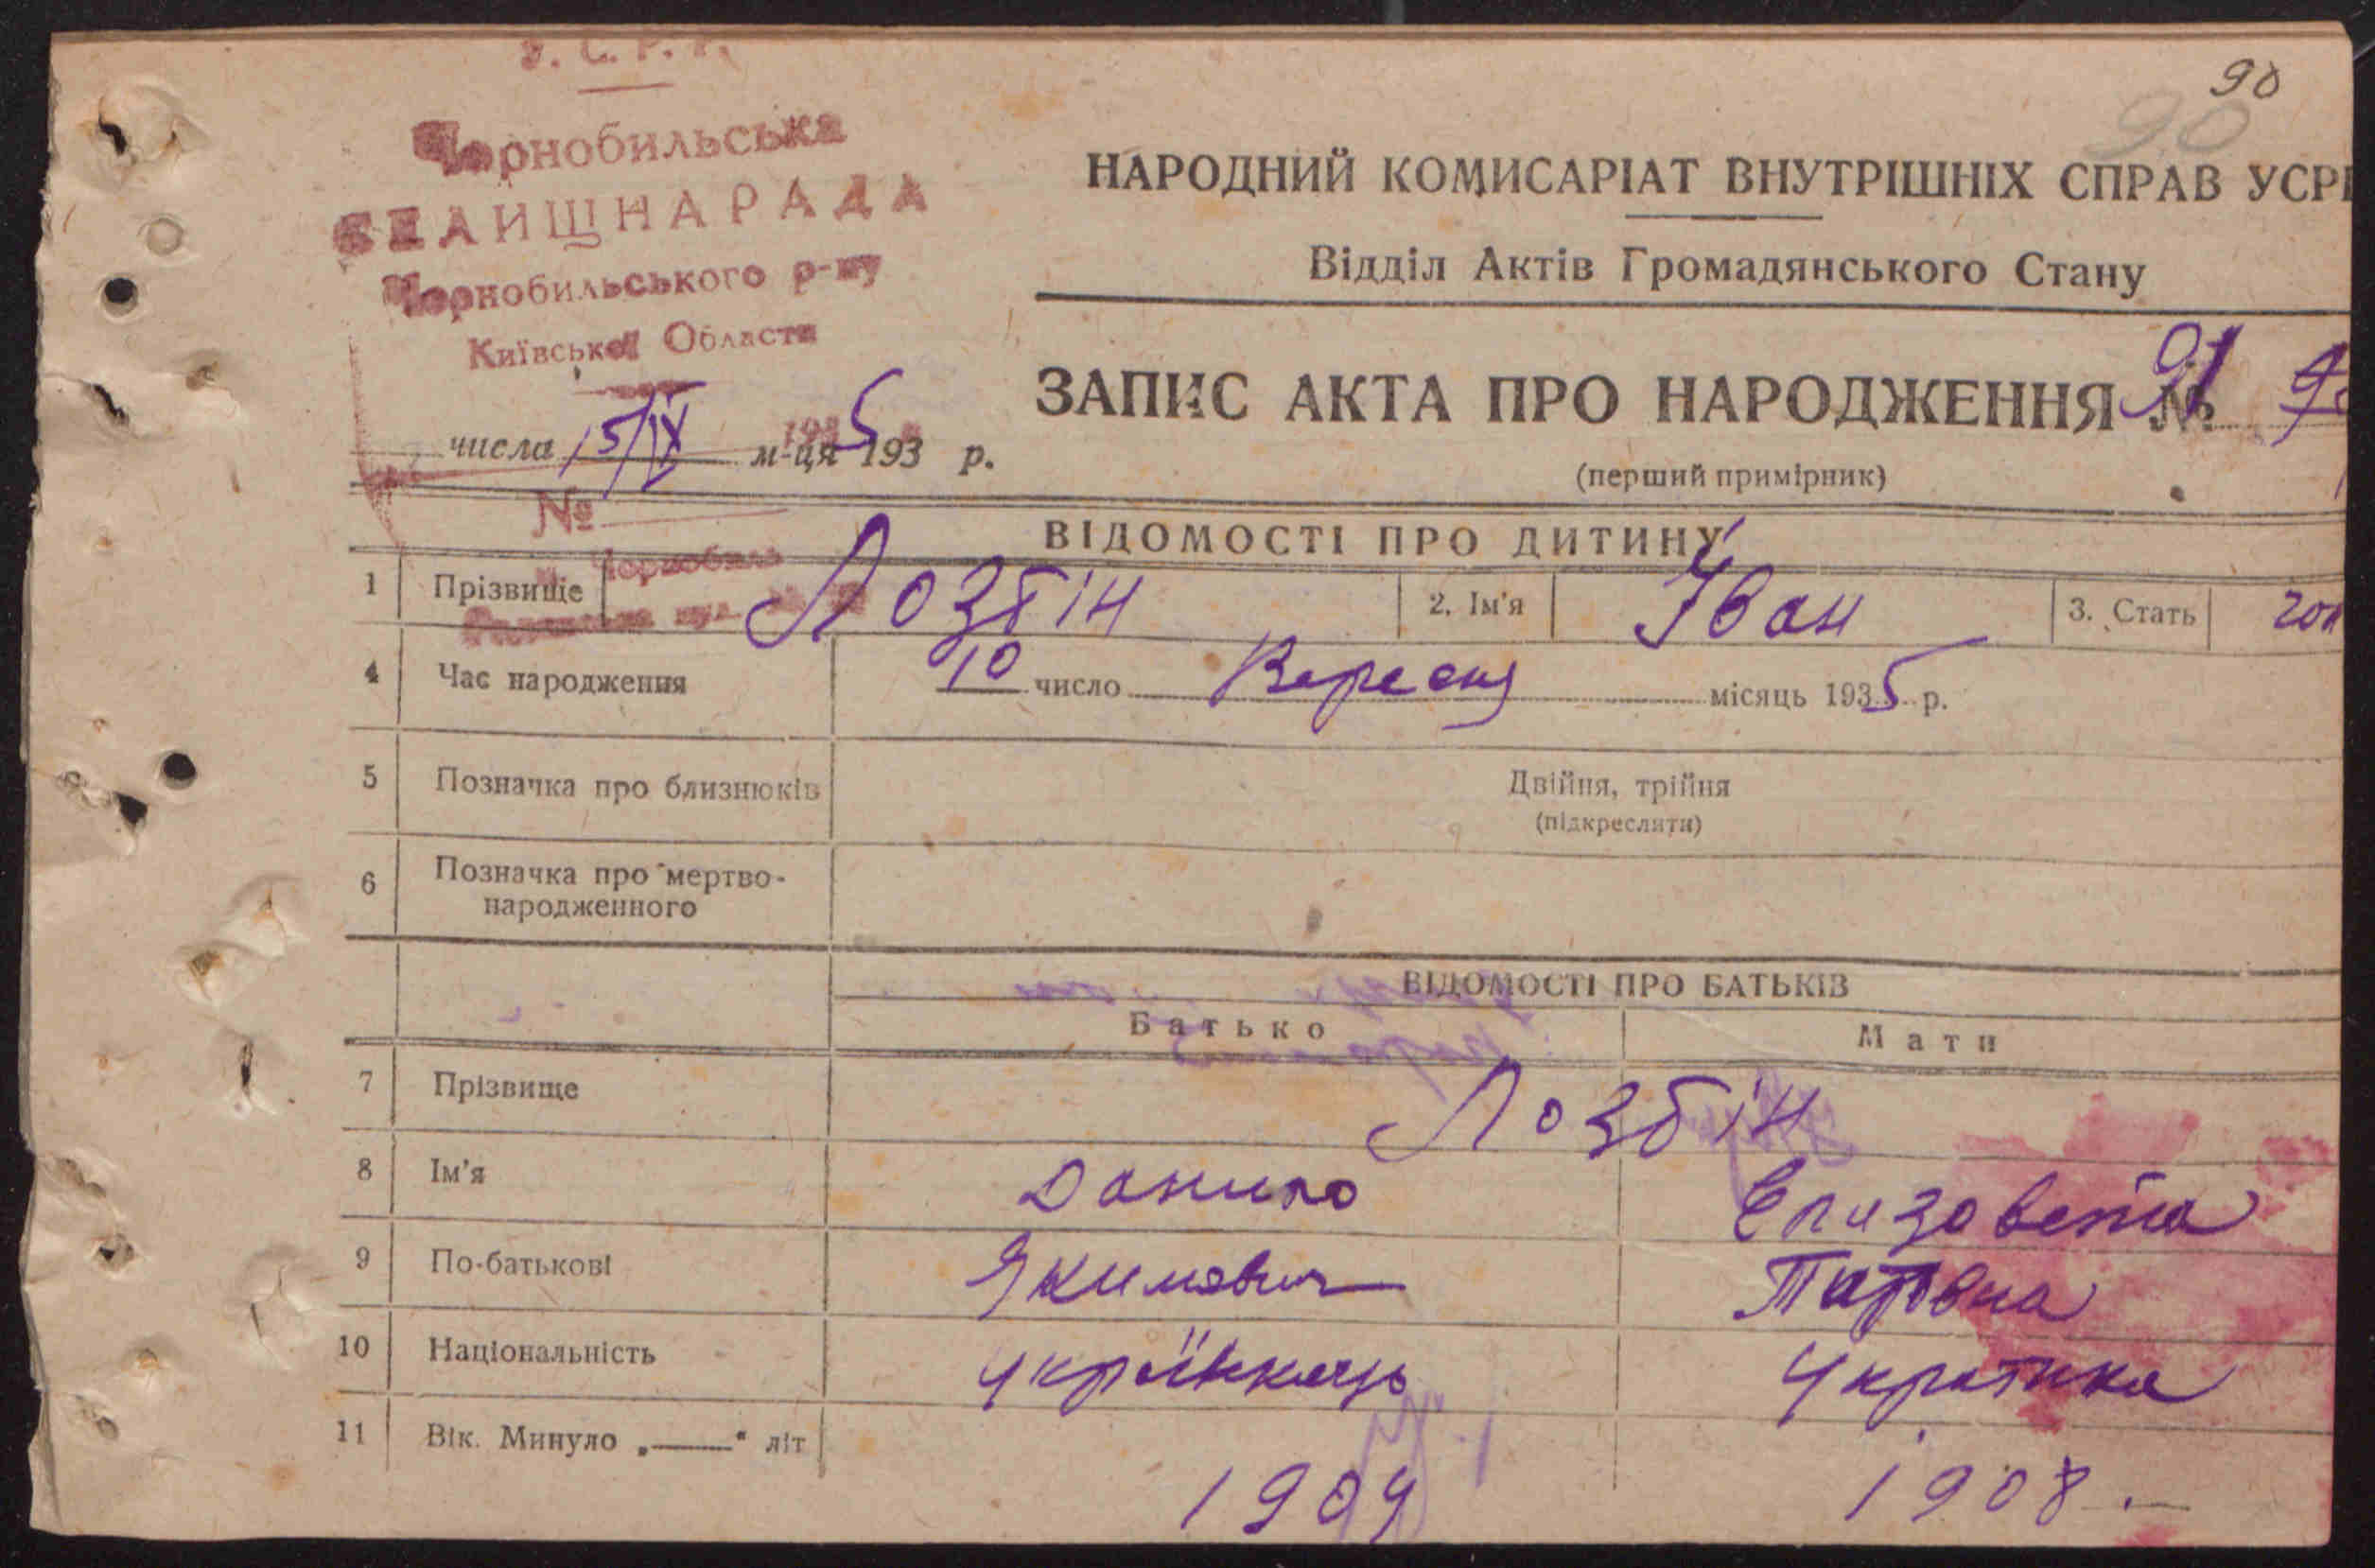 У. С. Р. Р.
90
90
Чорнобильська
СЕЛИЩНАРАДА
Чорнобильського р-ну
Київської Области
НАРОДНИЙ КОМИСАРІАТ ВНУТРІШНІХ СПРАВ УСРР
Відділ Актів Громадянського Стану
ЗАПИС АКТА ПРО НАРОДЖЕННЯ № 91
(перший примірник)
числа 15/IX м-ця 1935 р.
№
м. Чорнобиль
ВІДОМОСТІ ПРО ДИТИНУ
1 Прізвище Лозбін 2. Ім'я Іван 3. Стать чол
4 Час народження 10 число Вересня місяць 1935 р.
5 Позначка про близнюків Двійня, трійня
(підкреслити)
6 Позначка про мертво-
народженного
ВІДОМОСТІ ПРО БАТЬКІВ
Батько Мати
7 Прізвище Лозбін
8 Ім'я Данило Єлизавета
9 По-батькові Якимович
10 Національність
11 Вік. Минуло „——" літ 1909 1908